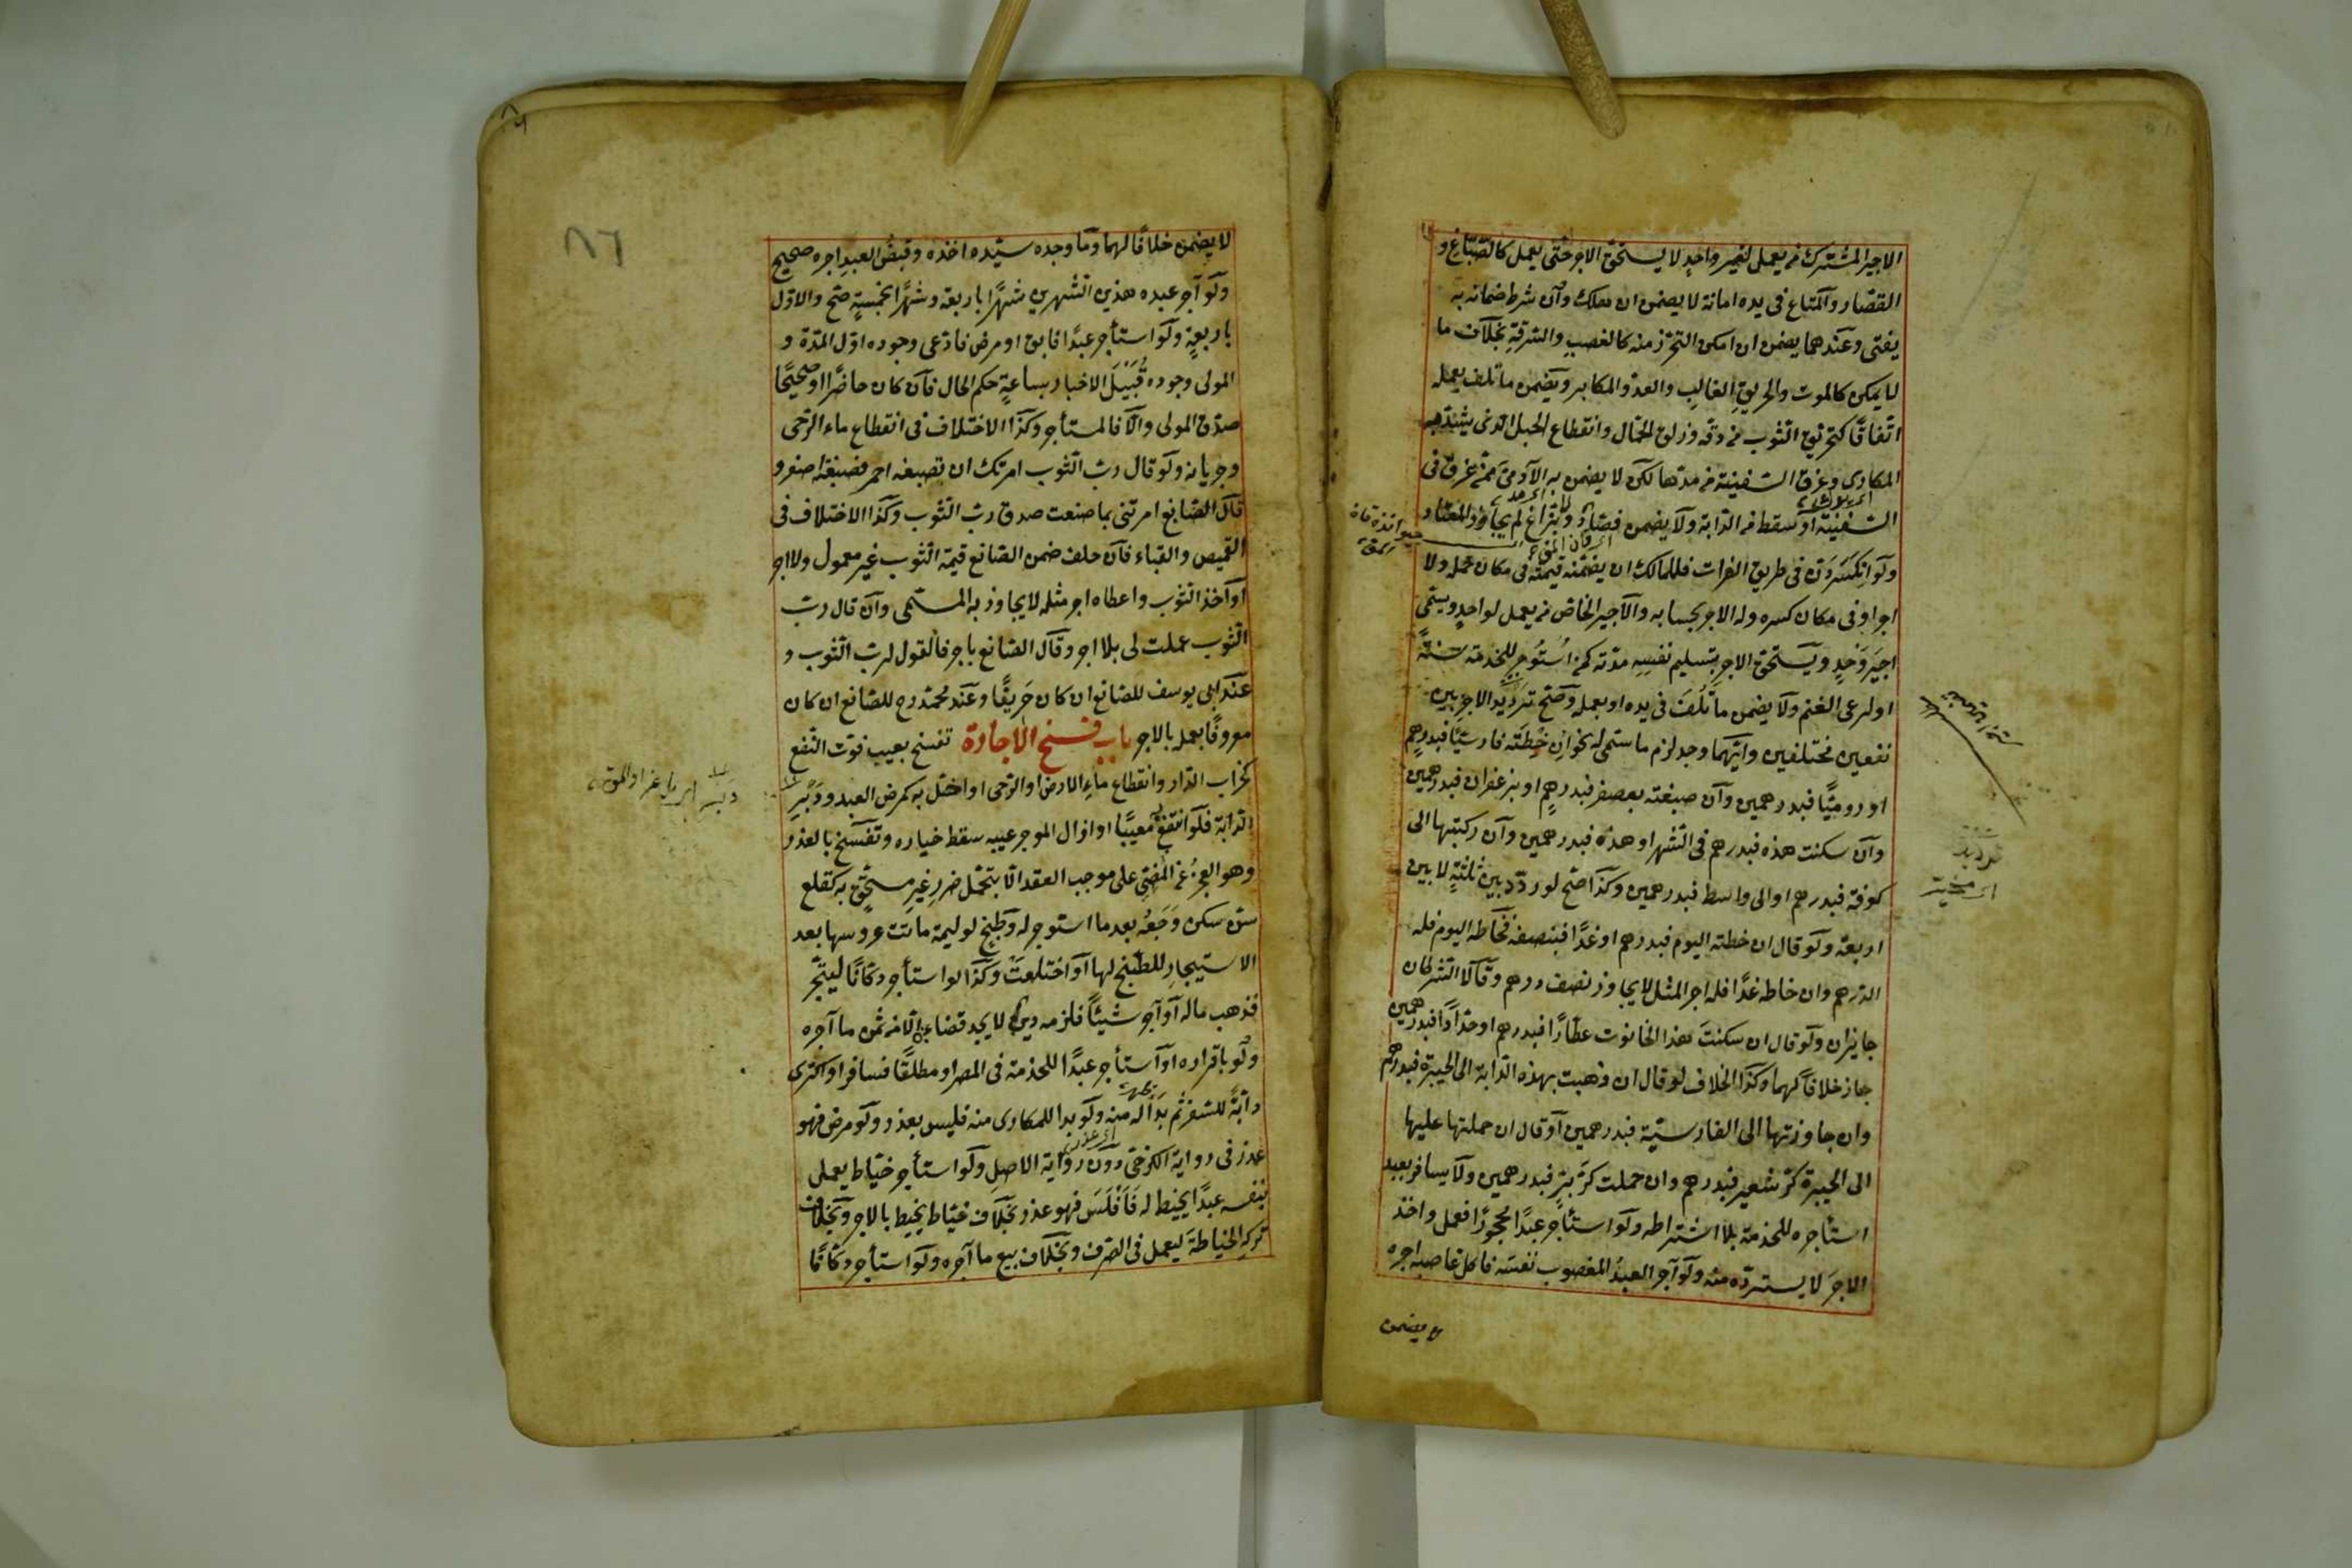 الاجير المشترك من يعمل لغير واحد لا يستحق الاجر حتى يعمل كالصباغ و
القصار والمتاع فى يده امانة لا يضمن ان هلك وان شرط ضمانه به
يفتى وعندهما يضمن ان امكن التحرز منه كالغصب والسرقة بخلاف ما
لا يمكن كالموت والحريق الغالب والعدو المكابر ويضمن ما تلف بعمله
اتفاقًا كتخريق الثوب من دقه وزلق الحمال وانقطاع الحبل الذى يشد به
المكارى وغرق السفينة من مدها لكن لا يضمن به الآدمى ممن غرق فى
السفينة او سقط من الدابة ولا يضمن فصاد ولا بزاغ لم يجاوز المعتاد
ولو انكسر دن فى طريق الفرات فللمالك ان يضمنه قيمته فى مكان حمله ولا
اجر او فى مكان كسره وله الاجر بحسابه والاجير الخاص من يعمل لواحد ويسمى
اجير وحد ويستحق الاجر بتسليم نفسه مدته كمن استوجر للخدمة سنة
او لرعى الغنم ولا يضمن ما تلف فى يده او بعمله وصح ترديد الاجر بين
نفعين مختلفين وايهما وجد لزم ما سمى له نحو ان خطته فارسيًا فبدرهم
او روميًا فبدرهمين وان صبغته بعصفر فبدرهم او بزعفران فبدرهمين
وان سكنت هذه فبدرهم فى الشهر او هذه فبدرهمين وان ركبتها الى
كوفة فبدرهم او الى واسط فبدرهمين وكذا صح لو ردد بين ثلثة لا بين
اربعة ولو قال ان خطته اليوم فبدرهم او غدًا فبنصفه فخاطه اليوم فله
الدرهم وان خاطه غدًا فله اجر المثل لا يجاوز نصف درهم وقالا الشرطان
جايزان ولو قال ان سكنت هذا الحانوت عطارًا فبدرهم او حدادًا فبدرهمين
جاز خلافًا لهما وكذا الخلاف لو قال ان ذهبت بهذه الدابة الى الحيرة فبدرهم
وان جاوزتها الى القادسية فبدرهمين او قال ان حملتها عليها
الى الحيرة كر شعير فبدرهم وان حملت كر بر فبدرهمين ولا يسافر بعبد
استأجره للخدمة بلا اشتراطه ولو استأجر عبدًا محجورًا فعمل واخذ
الاجر لا يسترده منه ولو آجر العبد المغصوب نفسه فاكل غاصبه اجره
لا يضمن
٨٦
لا يضمن خلافًا لهما وما وجده سيده اخذه وقبض العبد اجره صحيح
ولو آجر عبده هذين الشهرين شهرًا باربعة وشهرًا بخمسة صح والاول
باربعة ولو استأجر عبدًا فابق او مرض فادعى وجوده اول المدة و
المولى وجوده قبيل الاخبار بساعة حكم الحال فان كان حاضرًا او صحيحًا
صدق المولى والا فالمستأجر وكذا الاختلاف فى انقطاع ماء الرحى
وجريانه ولو قال رب الثوب امرتك ان تصبغه احمر فصبغته اصفر و
قال الصانع امرتنى بما صنعت صدق رب الثوب وكذا الاختلاف فى
القميص والقباء فان حلف ضمن الصانع قيمة الثوب غير معمول ولا اجر
او اخذ الثوب واعطاه اجر مثله لا يجاوز به المسمى وان قال رب
الثوب عملت لى بلا اجر وقال الصانع باجر فالقول لرب الثوب و
عند ابى يوسف للصانع ان كان حريفًا وعند محمد رح للصانع ان كان
معروفًا بعمله بالاجر باب فسخ الاجارة تفسخ بعيب فوت النفع
كخراب الدار وانقطاع ماء الارض او الرحى او اختل به كمرض العبد ودبر
الدابة فلو انتفع معيبًا او ازال الموجر عيبه سقط خياره وتفسخ بالعذر
وهو العجز عن المضى على موجب العقد الا بتحمل ضرر غير مستحق به كقلع
سن سكن وجعه بعد ما استوجر له وطبخ لوليمة ماتت عروسها بعد
الاستيجار للطبخ لها او اختلعت وكذا لو استأجر دكانًا ليتجر
فذهب ماله او آجر شيئًا فلزمه دين لا يجد قضاءه الا من ثمن ما آجره
ولو باقراره او استأجر عبدًا للخدمة فى المصر او مطلقًا فسافر او اكترى
دابة للسفر ثم بدا له منه ولو بدا للمكارى منه فليس بعذر ولو مرض فهو
عذر فى رواية الكرخى دون رواية الاصل ولو استأجر خياط يعمل
بنفسه عبدًا يخيط له فافلس فهو عذر بخلاف خياط يخيط بالاجر وبخلاف
تركه الخياطة ليعمل فى الصرف وبخلاف بيع ما آجره ولو استأجر دكانًا